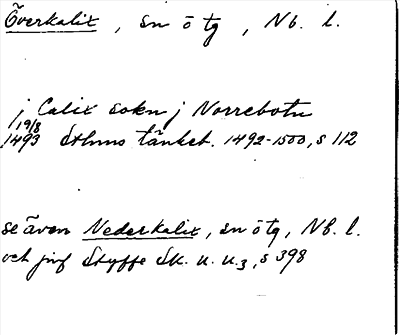 Överkalix, sn o tg, Nb. l.
j Calix sokn j Norrebotn
19/8
1493 Sthms tänkeb. 1492-1500, s 112
se även Nederkalix, sn o tg, Nb. l.
och jmf Styffe Sk. u. u.3, s 398